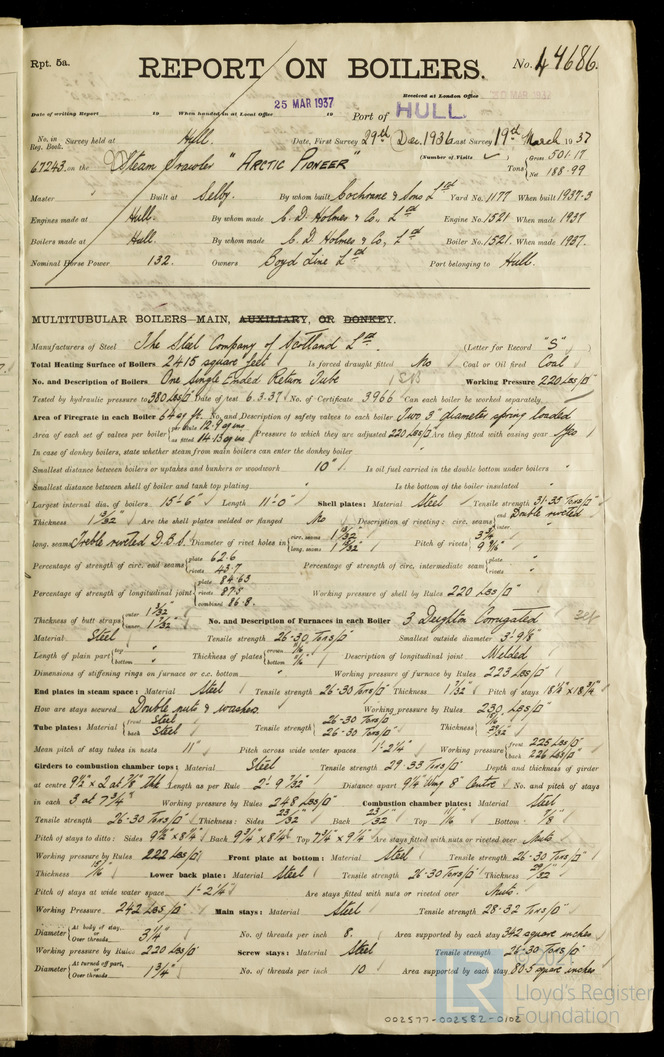 Rpt. 5a.
REPORT ON BOILERS.
No. 44686.
25 MAR 1937
Received at London Office
30 MAR 1937
Date of writing Report 19 When handed in at Local Office 19 Port of HULL.
No. in Reg. Book. Survey held at Hull. Date, First Survey 29th Dec. 1936 Last Survey 19th March 1937
67243 on the Steam Trawler "ARCTIC PIONEER" (Number of Visits ) Tons { Gross 501.17 Net 188.99
Master Built at Selby. By whom built Cochrane & Sons Ltd Yard No. 1177 When built 1937-3
Engines made at Hull. By whom made C. D. Holmes & Co., Ltd Engine No. 1521 When made 1937
Boilers made at Hull. By whom made C. D. Holmes & Co., Ltd Boiler No. 1521. When made 1937.
Nominal Horse Power 132. Owners Boyd Line Ltd Port belonging to Hull.
MULTITUBULAR BOILERS—MAIN, AUXILIARY, OR DONKEY.
Manufacturers of Steel The Steel Company of Scotland Ltd. (Letter for Record "S")
Total Heating Surface of Boilers 2415 square feet Is forced draught fitted No Coal or Oil fired Coal
No. and Description of Boilers One Single Ended Return Tube Working Pressure 220 Lbs/□"
Tested by hydraulic pressure to 380 Lbs/□" Date of test 6.3.37 No. of Certificate 3966 Can each boiler be worked separately
Area of Firegrate in each Boiler 64 sq ft. No. and Description of safety valves to each boiler Two 3" diameter spring loaded
Area of each set of valves per boiler { per Rule 12.9 sq ins as fitted 14.13 sq ins Pressure to which they are adjusted 220 Lbs/□" Are they fitted with easing gear Yes
In case of donkey boilers, state whether steam from main boilers can enter the donkey boiler "
Smallest distance between boilers or uptakes and bunkers or woodwork 10" Is oil fuel carried in the double bottom under boilers "
Smallest distance between shell of boiler and tank top plating " Is the bottom of the boiler insulated "
Largest internal dia. of boilers 15'-6" Length 11'-0" Shell plates: Material Steel Tensile strength 31-35 Tons/□"
Thickness 1 9/32" Are the shell plates welded or flanged No Description of riveting: circ. seams { end Double riveted inter. "
long. seams Treble riveted D.B.S. Diameter of rivet holes in { circ. seams 1 11/32" long. seams 1 11/32" Pitch of rivets { 3 3/4" 9 7/16"
Percentage of strength of circ. end seams { plate 62.6 rivets 43.7 Percentage of strength of circ. intermediate seam { plate " rivets "
Percentage of strength of longitudinal joint { plate 84.63 rivets 87.5 combined 86.8. Working pressure of shell by Rules 220 Lbs/□"
Thickness of butt straps { outer 1 3/32" inner 1 7/32" No. and Description of Furnaces in each Boiler 3 Deighton Corrugated
Material Steel Tensile strength 26-30 Tons/□" Smallest outside diameter 3'-9 1/8"
Length of plain part { top " bottom " Thickness of plates { crown 9/16" bottom 9/16" Description of longitudinal joint Welded
Dimensions of stiffening rings on furnace or c.c. bottom " Working pressure of furnace by Rules 223 Lbs/□"
End plates in steam space: Material Steel Tensile strength 26-30 Tons/□" Thickness 1 7/32" Pitch of stays 18 1/4" x 18 3/4"
How are stays secured Double nuts & washers. Working pressure by Rules 230 Lbs/□"
Tube plates: Material { front Steel back Steel Tensile strength { 26-30 Tons/□" 26-30 Tons/□" Thickness
Mean pitch of stay tubes in nests 11" Pitch across wide water spaces 1'-2 1/4" Working pressure { front 225 Lbs/□" back 226 Lbs/□"
Girders to combustion chamber tops: Material Steel Tensile strength 29-33 Tons/□" Depth and thickness of girder
at centre 9 1/2" x 2 at 7/8" Thk Length as per Rule 2'-9 7/32" Distance apart 9 1/4" Wing 8" Centre No. and pitch of stays
in each 3 at 7 3/4" Working pressure by Rules 248 Lbs/□" Combustion chamber plates: Material Steel
Tensile strength 26-30 Tons/□" Thickness: Sides 23/32" Back 23/32" Top 11/16" Bottom 7/8"
Pitch of stays to ditto: Sides 9 1/2" x 8 1/4" Back 9 3/4" x 8 1/4" Top 7 3/4" x 9 1/4" Are stays fitted with nuts or riveted over Nuts
Working pressure by Rules 222 Lbs/□" Front plate at bottom: Material Steel Tensile strength 26-30 Tons/□"
Thickness 15/16" Lower back plate: Material Steel Tensile strength 26-30 Tons/□" Thickness 29/32"
Pitch of stays at wide water space 1'-2 1/4" Are stays fitted with nuts or riveted over Nuts.
Working Pressure 242 Lbs/□" Main stays: Material Steel Tensile strength 28-32 Tons/□"
Diameter { At body of stay, or Over threads 3 1/4" No. of threads per inch 8. Area supported by each stay 342 square inches
Working pressure by Rules 220 Lbs/□" Screw stays: Material Steel Tensile strength 26-30 Tons/□"
Diameter { At turned off part, or Over threads 1 3/4" No. of threads per inch 10 Area supported by each stay 80.5 square inches
LR
© 2021
Lloyd's Register
Foundation
002577-002582-0102